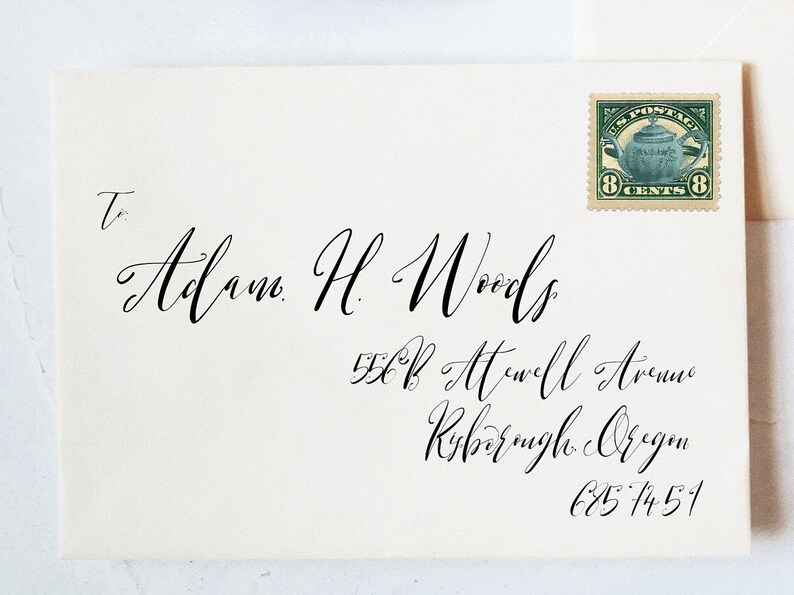 U.S. POSTAGE
8 CENTS 8
To:
Adam. H. Woods
556B Atewell Avenue
Risborough. Oregon
6857451